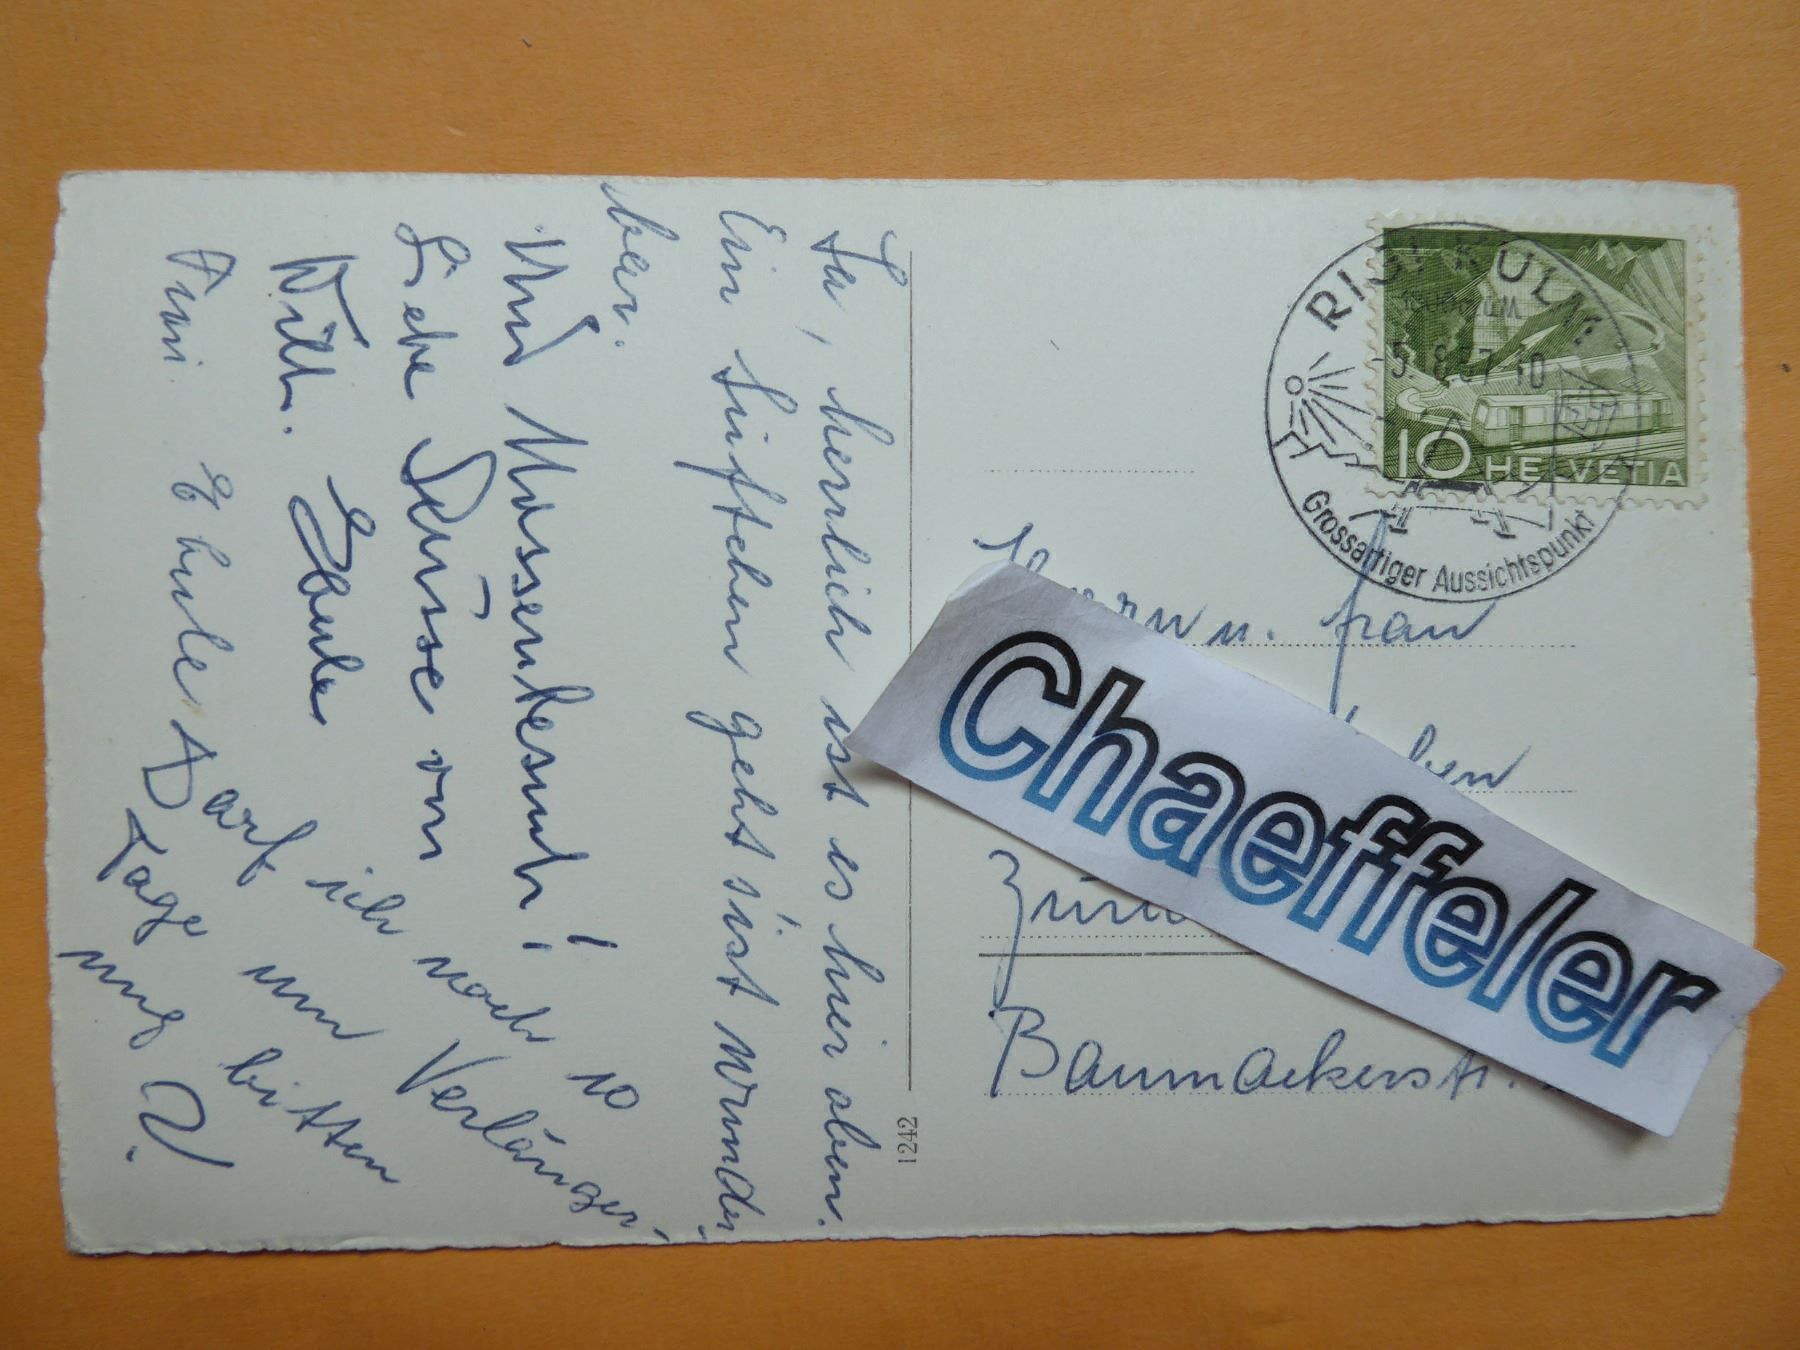 Ja, herrlich ist es hier oben.
Ein Lüftchen geht s'ist wunder-
bar.
Und Massenbesuch!
Liebe Grüsse von
Wilh. Eberle
Eberle
Darf ich noch 10
Tage um Verlänger-
ung bitten
V.
1242
RIGI KULM
5. 8. 57 10
Grossartiger Aussichtspunkt
10 HELVETIA
Herrn u. Frau
Baumackerstr.
Chaeffeler